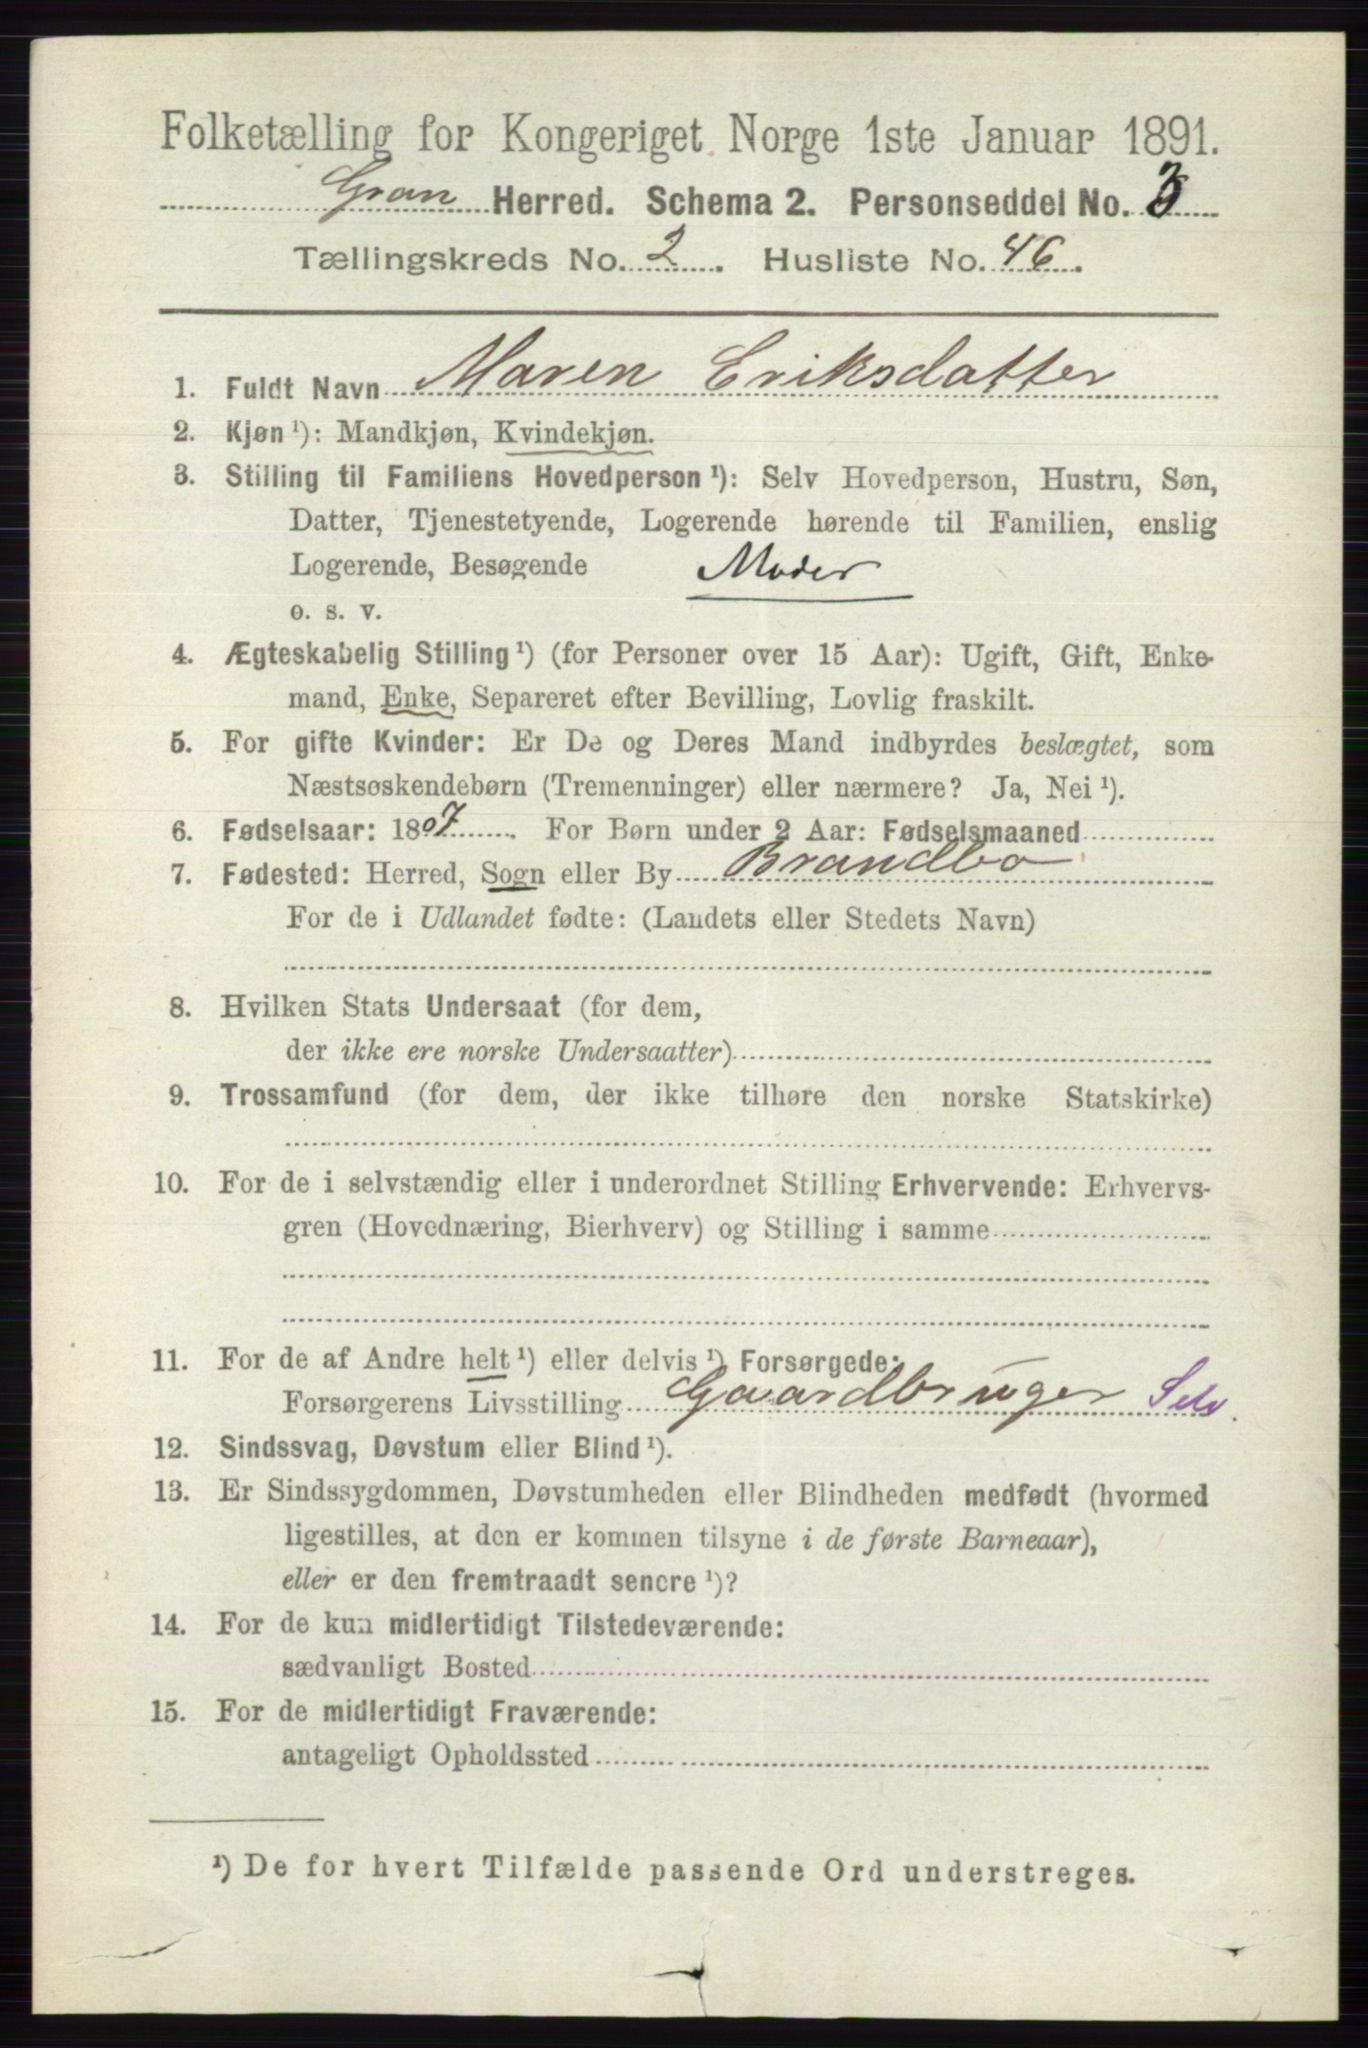 Folketælling for Kongeriget Norge 1ste Januar 1891.
Gran Herred. Schema 2. Personseddel No. 3
Tællingskreds No. 2. Husliste No. 46.
1. Fuldt Navn Maren Eriksdatter
2. Kjøn ¹): Mandkjøn, Kvindekjøn.
3. Stilling til Familiens Hovedperson ¹): Selv Hovedperson, Hustru, Søn,
Datter, Tjenestetyende, Logerende hørende til Familien, enslig
Logerende, Besøgende Moder
o. s. v.
4. Ægteskabelig Stilling ¹) (for Personer over 15 Aar): Ugift, Gift, Enke-
mand, Enke, Separeret efter Bevilling, Lovlig fraskilt.
5. For gifte Kvinder: Er De og Deres Mand indbyrdes beslægtet, som
Næstsøskendebørn (Tremenninger) eller nærmere? Ja, Nei ¹).
6. Fødselsaar: 1807. For Børn under 2 Aar: Fødselsmaaned
7. Fødested: Herred, Sogn eller By Brandbo
For de i Udlandet fødte: (Landets eller Stedets Navn)
8. Hvilken Stats Undersaat (for dem,
der ikke ere norske Undersaatter)
9. Trossamfund (for dem, der ikke tilhøre den norske Statskirke)
10. For de i selvstændig eller i underordnet Stilling Erhvervende: Erhvervs-
gren (Hovednæring, Bierhverv) og Stilling i samme
11. For de af Andre helt ¹) eller delvis ¹) Forsørgede:
Forsørgerens Livsstilling Gaardbruger Selv.
12. Sindssvag, Døvstum eller Blind ¹).
13. Er Sindssygdommen, Døvstumheden eller Blindheden medfødt (hvormed
ligestilles, at den er kommen tilsyne i de første Barneaar),
eller er den fremtraadt senere ¹)?
14. For de kun midlertidigt Tilstedeværende:
sædvanligt Bosted
15. For de midlertidigt Fraværende:
antageligt Opholdssted
¹) De for hvert Tilfælde passende Ord understreges.